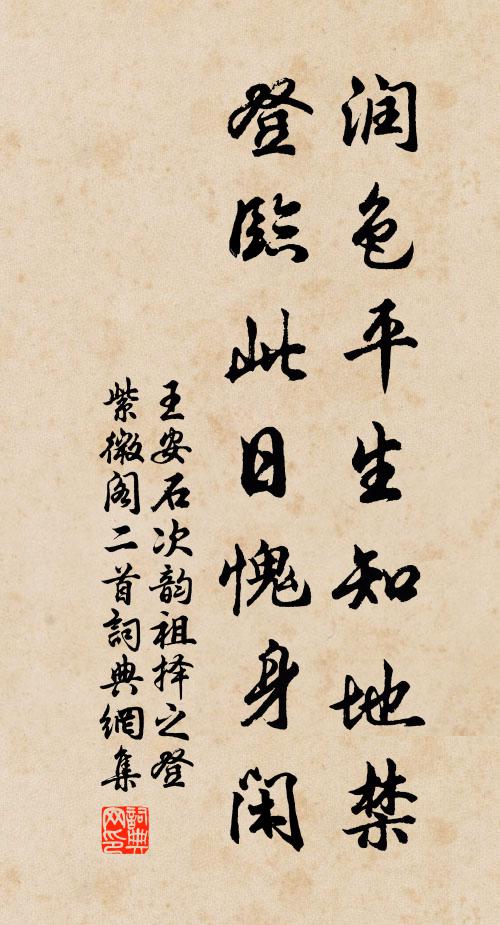 润色平生知地禁
登臨此日愧身闲
王安石次韵祖择之登
紫微阁二首詞典網集
詞典网印